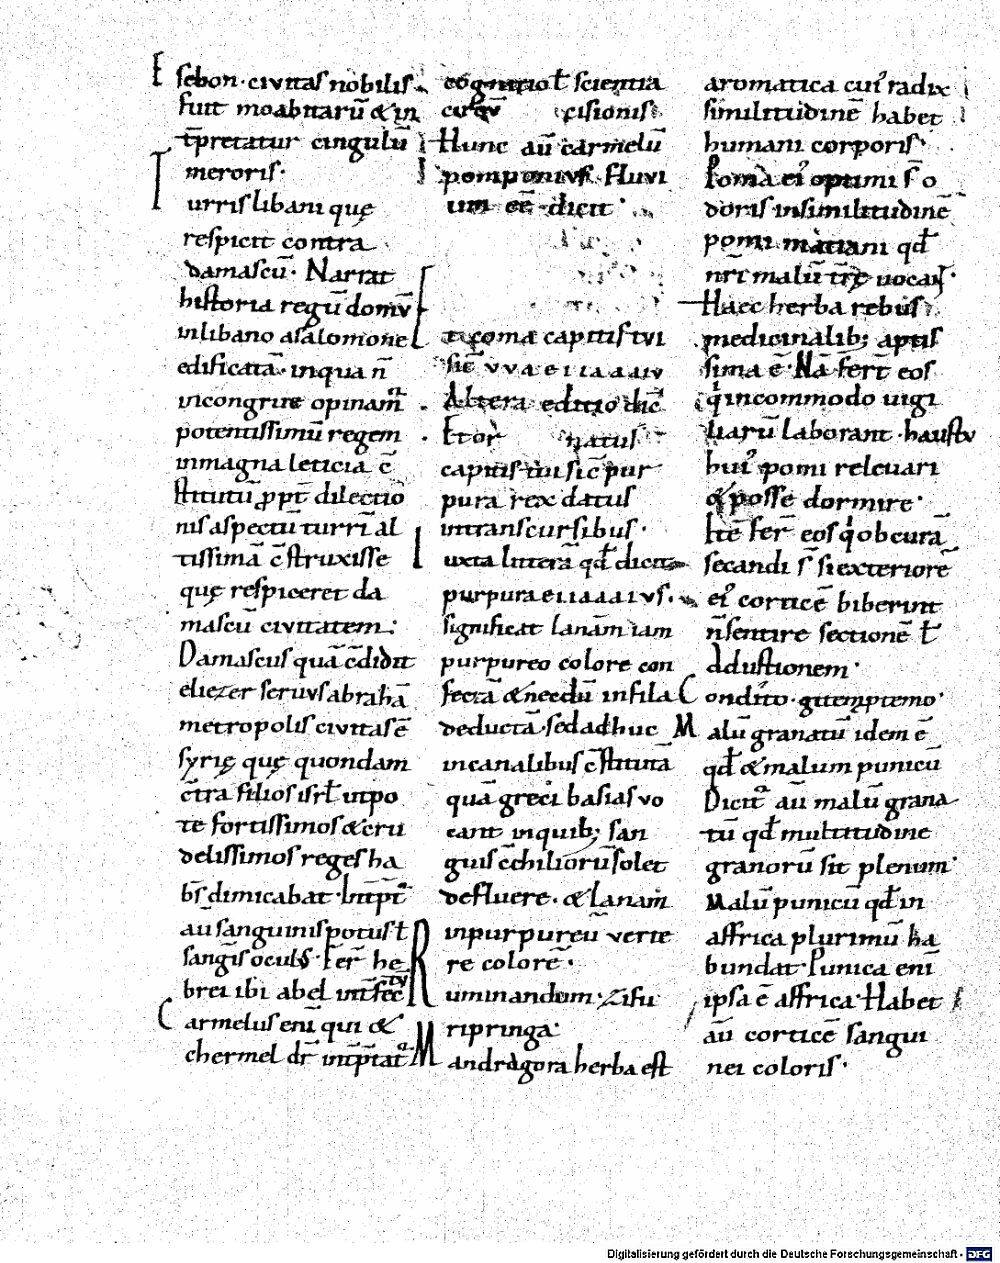 Esebon· civitas nobilis
fuit moabitarū & in
t̄pretatur cingulū
meroris·
Turris libani quę
respicit contra
damascū· Narrat
historia regū domū
inlibano asalomone
edificatā· inqua n̄
incongrue opinam̄
potentissimū regem
inmagna leticia c̄
stitutū ꝓpt̄ dilectio
nis aspectū turrī al
tissimā c̄struxisse
quę respiceret da
mascū civitatem·
Damascus quā c̄didit
eliezer servus abrahā
metropolis civitas ē
syrię quę quondam
c̄tra filios isrł utpo
te fortissimos & cru
delissimos reges ha
bs̄ dimicabat· Int̄pt̄
aū sanguinis potus ł
sangīs oculus· Fer̄ he
brei ibi abel int̄fectū
Carmelus enī qui &
chermel dr̄ int̄ptat̄
cognitio ł scientia
circūcisionis
Hunc aū carmelū
pomponius· Fluvi
um eē dicit·
Et coma capitis tui
sic̄ 
Altera editio dic̄
Et or natus
capitis tui sic̄ pur
pura rex datus
intranscursibus·
Iuxta litterā qd̄ dicit
purpura
significat lanam iam
purpureo colore con
fectā & necdū infila
deductā· sed adhuc
incanalibus c̄stitutā
quā greci basias vo
cant inquib; san
guis c̄chiliorū solet
defluere· & lanam
inpurpureū verte
re colorē·
Ruminandum·
ripringa·
Mandragora herba est
aromatica cui' radix
similitudinē habet
humani corporis·
Poma ei' optimi s̄ o
doris insimilitudinē
pomi matiani qd̄
nr̄i malū tr̄ę vocant·
Haec herba rebus
medicinalib; aptis
sima ē· Nā fert̄ eos
q̍ incommodo uigi
liarū laborant· haustu
hui' pomi relevari
& posse dormire·
Itē fer̄ eos q̍ ob curā
secandi s̄ si exteriorē
ei' corticē biberint
n̄ sentire sectionē ł
adustionem·
Condito·
Malū granatū idem ē
qd̄ & malum punicū
Dicit̄ aū malū grana
tū qd̄ multitudine
granorū sit plenum·
Malū punicū qd̄ in
affrica plurimū ha
bundat· Punica enī
ipsa ē affrica· Habet
aū corticē sangui
nei coloris·
Digitalisierung gefördert durch die Deutsche Forschungsgemeinschaft - DFG